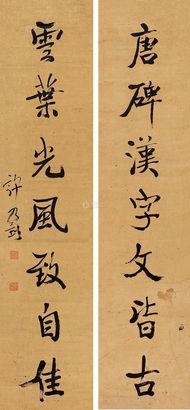 唐碑漢字文皆古
雲葉光風致自佳
許乃釗